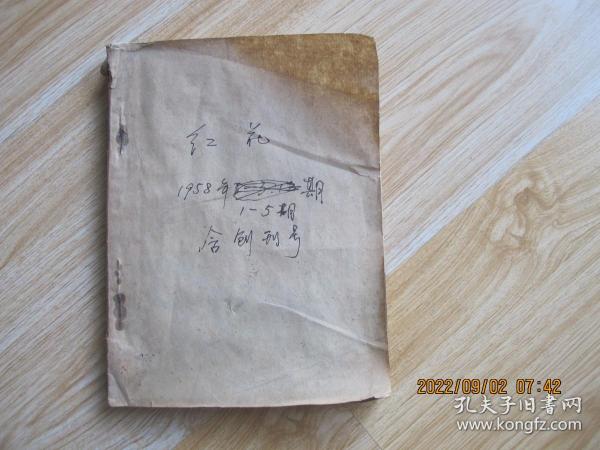 红花
1958年期
1-5期
含创刊号
2022/09/02 07:42
孔夫子旧书网
www.kongfz.com